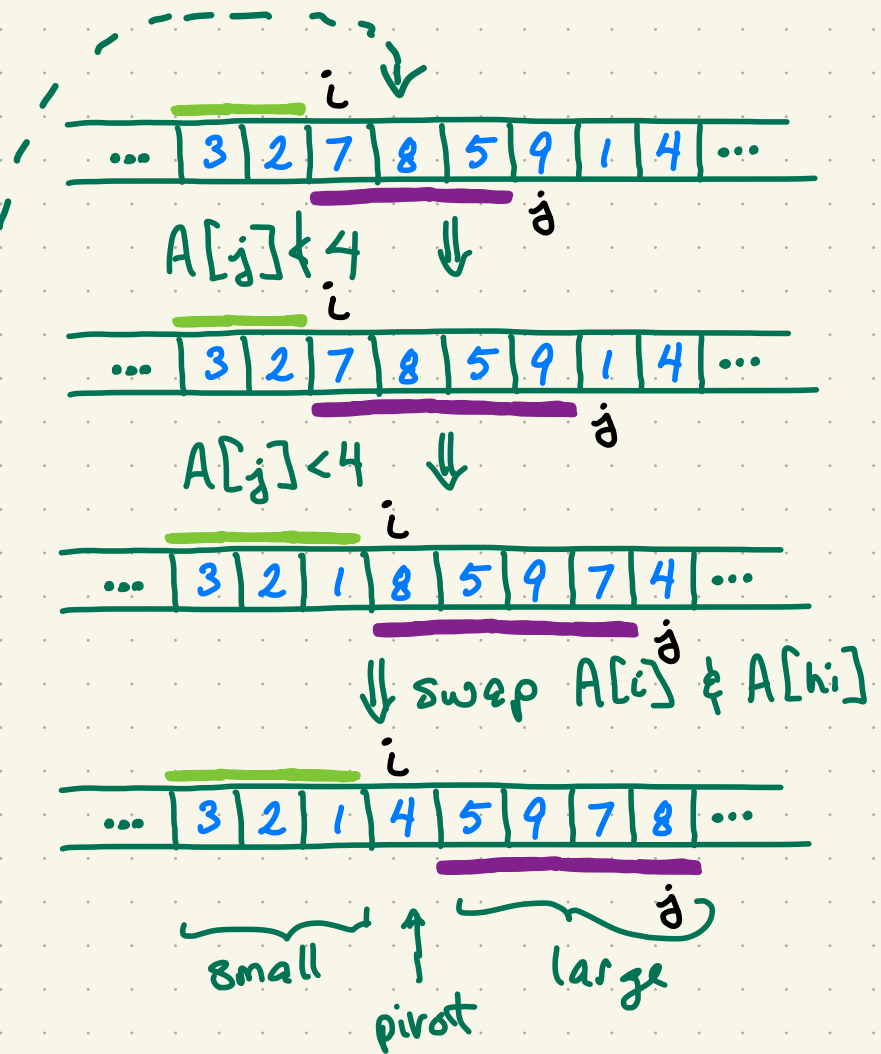 i
... 3 2 7 8 5 9 1 4 ...
j
A[j] ≮ 4 ⇓
i
... 3 2 7 8 5 9 1 4 ...
j
A[j] < 4 ⇓
i
... 3 2 1 8 5 9 7 4 ...
j
⇓ swap A[i] & A[hi]
i
... 3 2 1 4 5 9 7 8 ...
j
small ↑ large
pivot